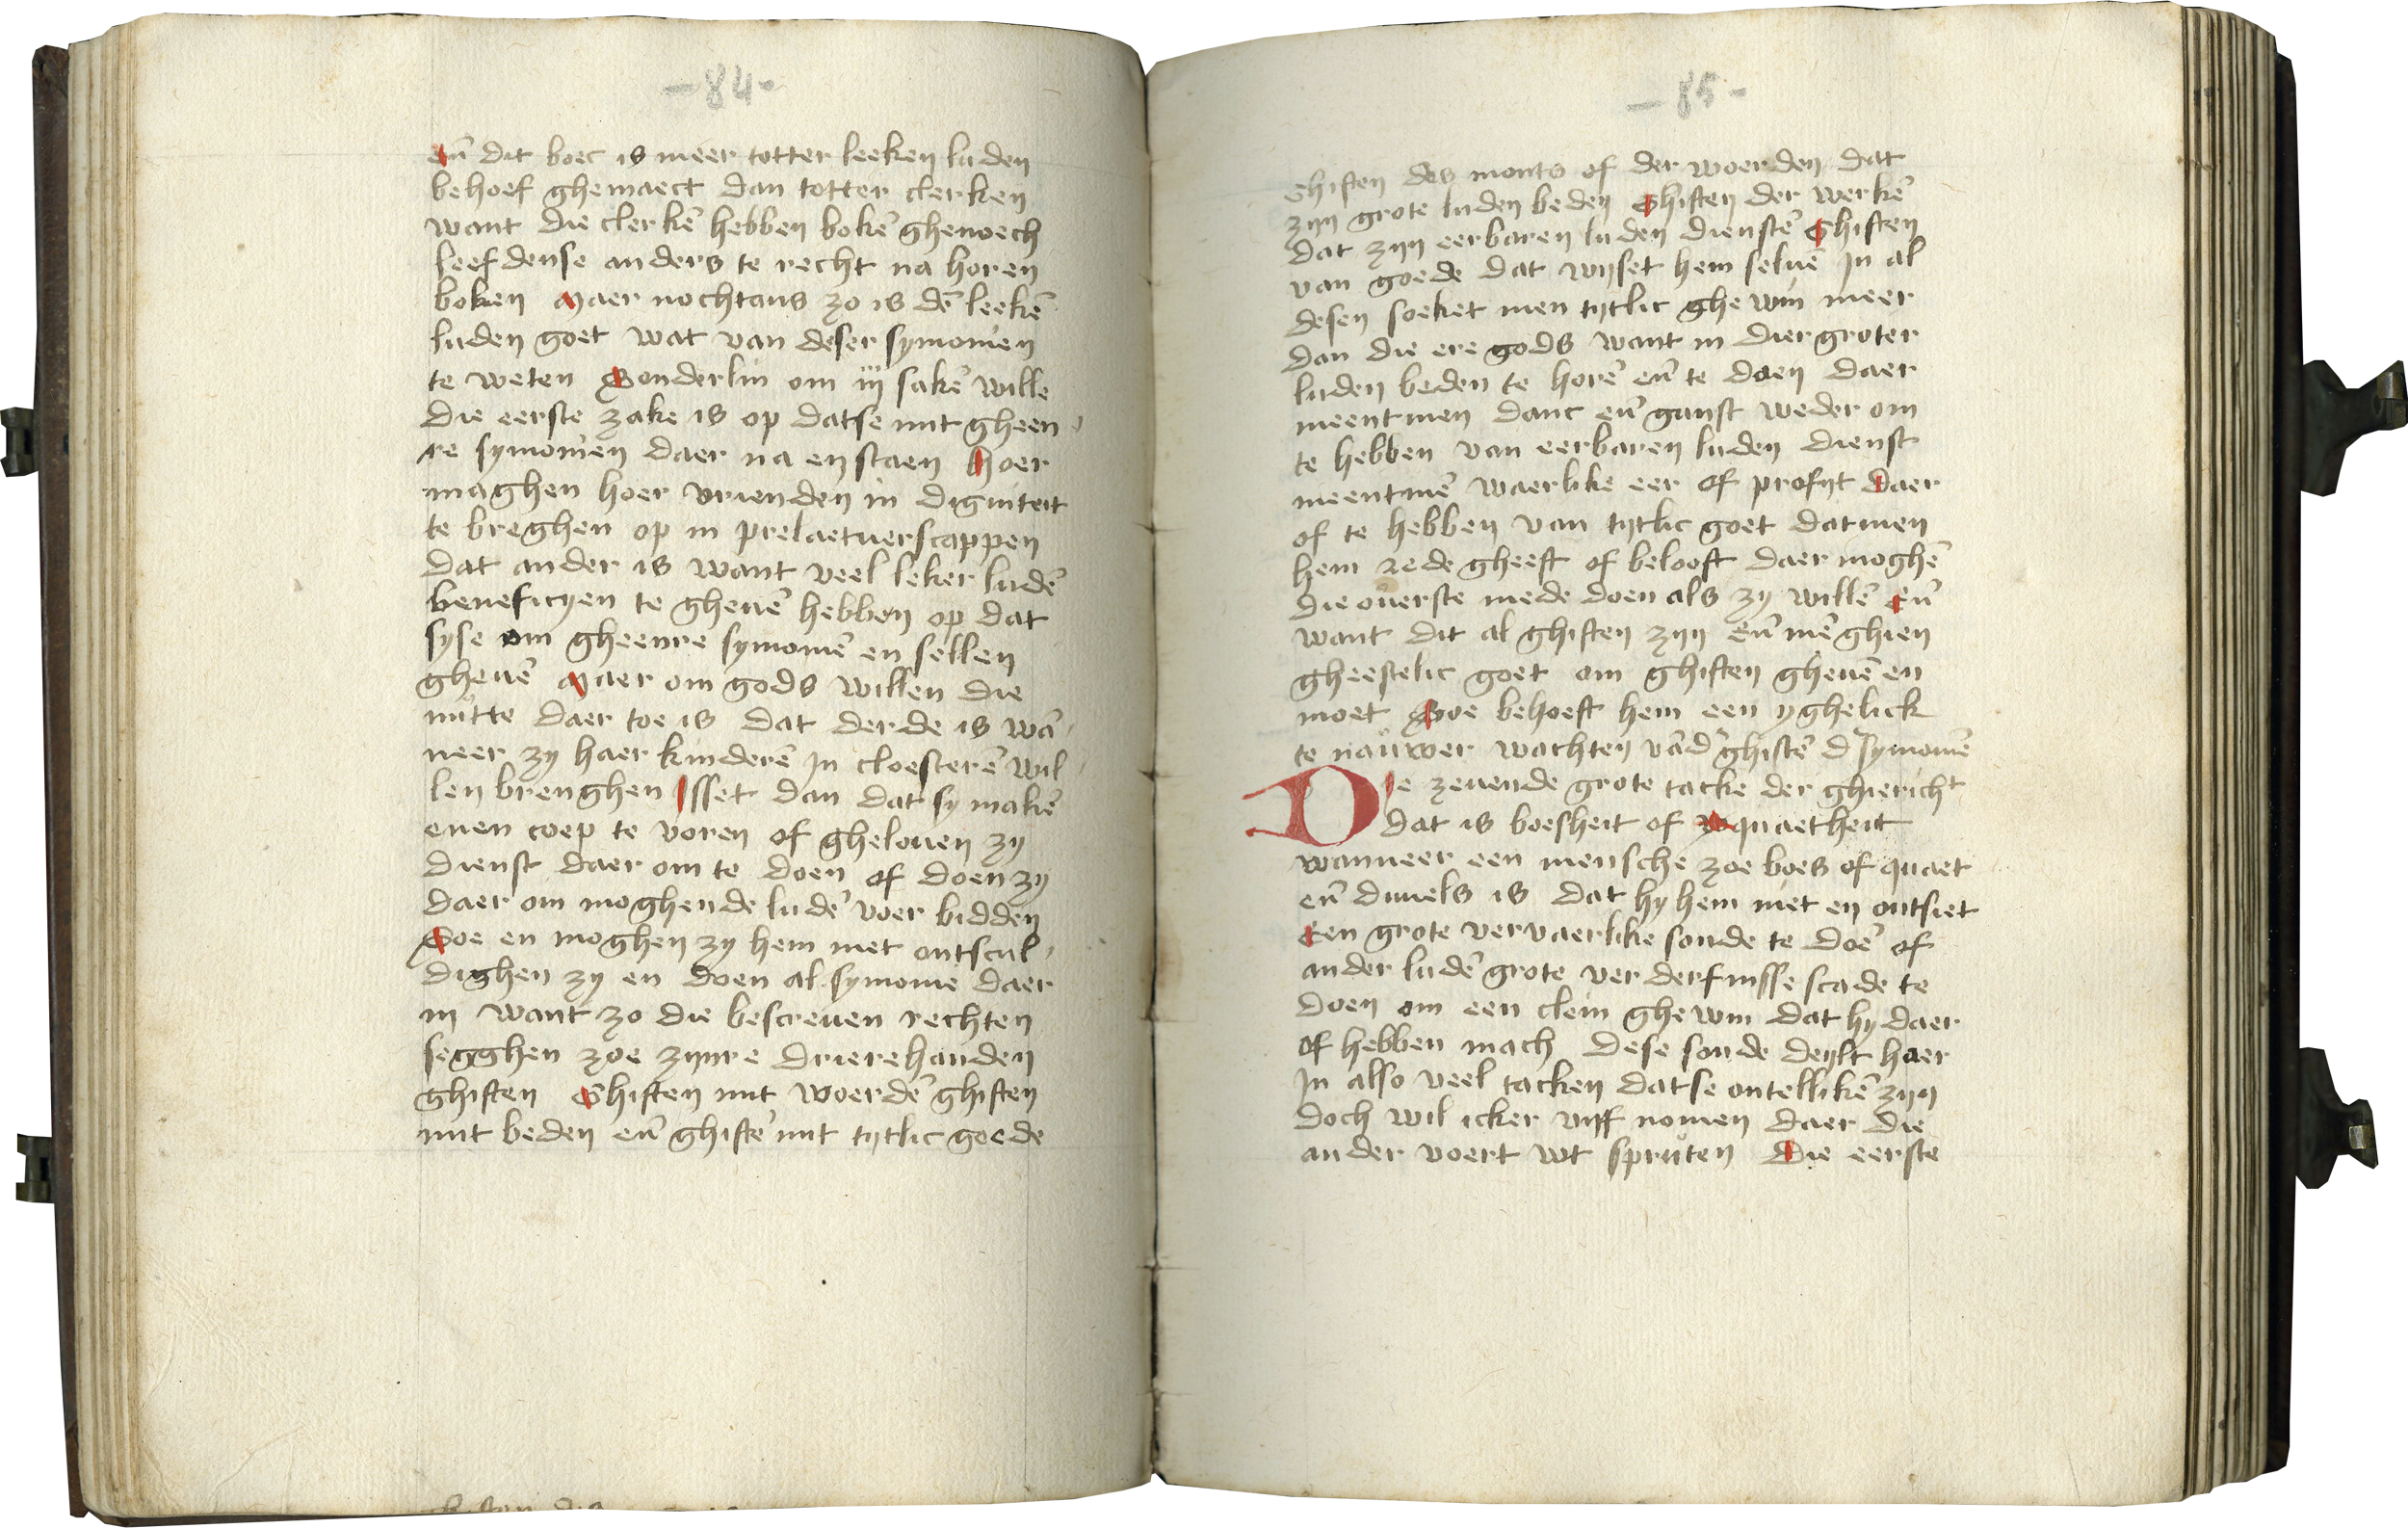 -84-
eñ dit boec is meer totter leeken luden
behoef ghemaect dan totter clerken
want die clerkē hebben bokē ghenoech
leefdense anders te recht na horen
boken Maer nochtans zo is dē leekē
luden goet wat van deser symonien
te weten Sonderlin om iij sakē wille
die eerste zake is op datse mit gheen
re symonien daer na en staen hoer
maghen hoer vrienden in digniteit
te breghen op in prelaetuerscappen
dat ander is want veel leker ludē
beneficyen te gheuē hebben op dat
syse om gheenre symoniē en sellen
gheuē Maer om gods willen die
nutte daer toe is dat derde is wā
neer zy haer kinderē in cloesterē wil
len brenghen Isset dan dat sy makē
enen coep te voren of ghelouen zy
dienst daer om te doen of doen zy
daer om moghende ludē voer bidden
Soe en moghen zy hem niet ontscul
dighen zy en doen al symonie daer
in want zo die bescreuen rechten
segghen zoe zynre drierehanden
ghiften Ghiften mit woerdē ghiften
mit beden eñ ghiftē mit tytlic goede
-85-
Ghiften des monts of der woerden dat
zyn grote luden beden Ghiften der werkē
dat zyn eerbaren luden dienstē Ghiften
van goede dat wyset hem seluē In al
desen soeket men tytlic ghewin meer
dan die ere gods want in dier groter
luden beden te horē eñ te doen daer
meentmen danc eñ ganst weder om
te hebben van eerbaren luden dienst
meentmē waerlike eer of profyt daer
of te hebben van tytlic goet datmen
hem rede gheeft of belooft daer moghē
die ouerste mede doen als zy willē eñ
want dit al ghiften zyn eñ mē ghien
gheestelic goet om ghiften gheuē en
moet Soe behoeft hem een yghelick
te nauwer wachten vād' ghiftē d' symoniē
Die zeuende grote tacke der ghiericht
dat is boesheit of quaetheit
wanneer een mensche zoe boes of quaet
eñ duuels is dat hy hem niet en ontsiet
een grote vervaerlike sonde te doē of
ander ludē grote verderfnisse scade te
doen om een clein ghewin dat hy daer
of hebben mach dese sonde deylt haer
In also veel tacken datse ontellikē zyn
doch wil icker vyf nomen daer die
ander voert wt spruten Die eerste